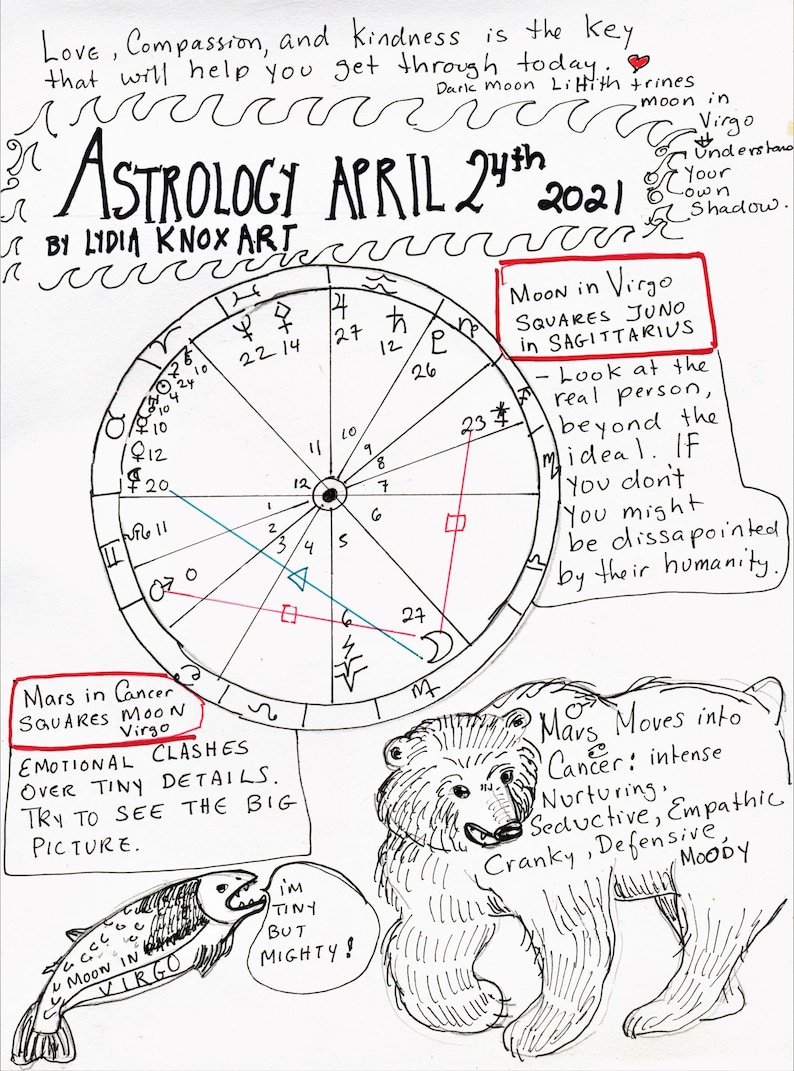 Love, Compassion, and kindness is the key
that will help you get through today. ❤
Dark Moon Lilith trines
moon in
Virgo
↓
Understand
Your
own
Shadow.
ASTROLOGY APRIL 24th 2021
BY LYDIA KNOX ART
Moon in Virgo
SQUARES JUNO
in SAGITTARIUS
- Look at the
real person,
beyond the
ideal. IF
you don't
you might
be dissapointed
by their humanity.
♓ ♒
♆ ⚴ ♃ ♄ ♇ ♑
22 14 27 12 26
♈
10
24
4
10
♉
☿ 10
♀ 12
⚸ 20
♊ ☊ 11
♂ 0
23 ⚵
♐
♏
♎
11 10
9
8
12 7
1 6
2
3 4 5
6
27
☽
♋ ♌ ♍
Mars in Cancer
SQUARES MOON
Virgo
EMOTIONAL CLASHES
OVER TINY DETAILS.
TRY TO SEE THE BIG
PICTURE.
♂
Mars Moves into
♋
Cancer: intense
Nurturing,
Seductive, Empathic
Cranky, Defensive,
MOODY
I'M
TINY
BUT
MIGHTY!
MOON IN
VIRGO